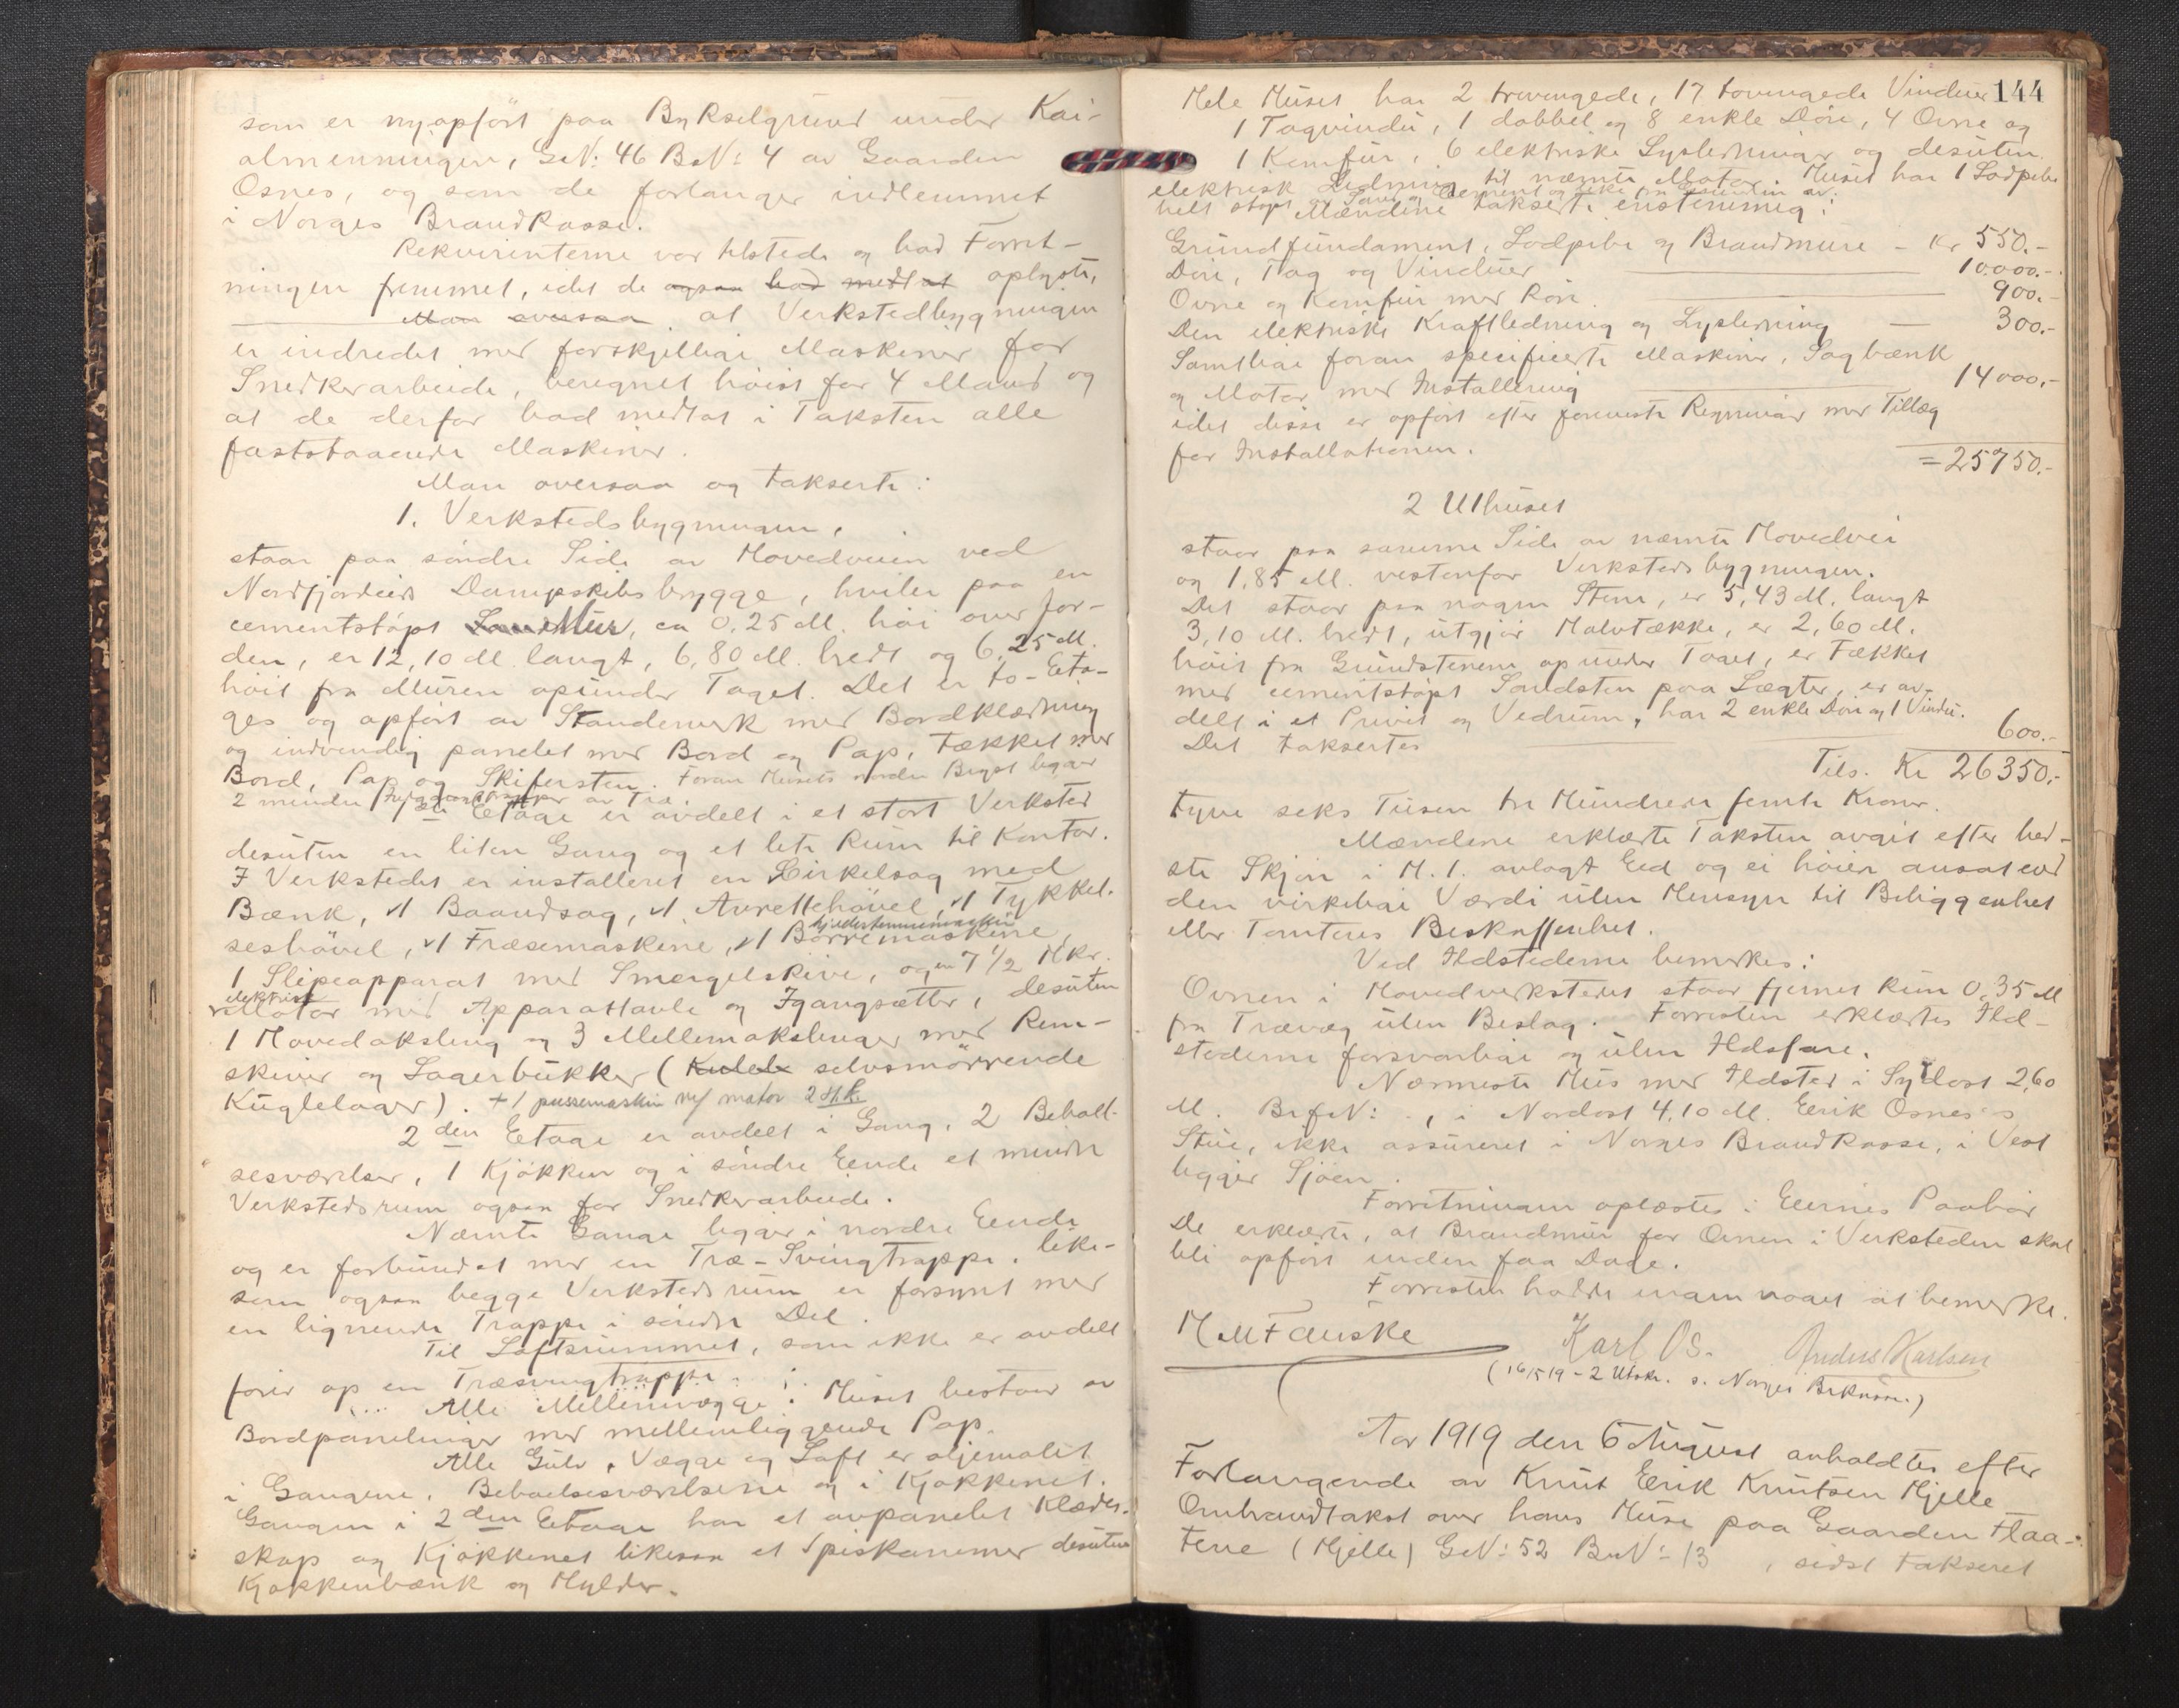 som er nyopført paa Bykselgrund under Kai-
almenningen, G.N: 46 B.N: 4 av Gaarden
Osnes, og som de forlanger indlemmet
i Norges Brandkasse.
Rekvirenterne var tilstede og bad Forret-
ningen fremmet, idet de ogsaa bad medtat oplyste,
Man oversaa at Verkstedbygningen
er indredet med forskjellige Maskiner for
Snedkerarbeide, beregnet høist for 4 Mand og
at de derfor bad medtat i Taksten alle
faststaaende Maskiner.
Man oversaa og takserte:
1. Verkstedsbygningen,
staar paa søndre Side av Hovedveien ved
Nordfjordeids Dampskibsbrygge, hviler paa en
cementstøpt Mur, ca 0,25 M. høi over Jor-
den, er 12,10 M. langt, 6,80 M. bredt og 6,25 M.
høit fra Muren opunder Taget. Det er to-Eta-
ges og opført av Standerverk med Bordklædning
og indvendig panelet med Bord og Pap, tækket med
Bord, Pap og Skifersten. Foran Husets nordre Bryst ligger
2 mindre av Træ.
Etage er avdelt i et stort Verksted
desuten en liten Gang og et lite Rum til Kontor.
I Verkstedet er installeret en Cirkelsag med
Bænk, 1 Baandsag, 1 Avrettehøvel, 1 Tykkel-
seshøvel, 1 Fræsemaskine, 1 Borremaskine,
1 Slipeapparat med Smergelskive, og en 7 1/2 Hkr.
elektrisk
Motor med Apparattavle og Igangsætter, desuten
1 Hovedaksling og 3 Mellemakslinger med Rem-
skiver og Lagerbukker (Kulela selvsmørrende
Kuglelager). + 1 pussemaskin m/ motor 2 Hk.
2den Etage er avdelt i Gang, 2 Beboel-
sesværelser, 1 Kjøkken og i søndre Ende et mindre
Verkstedsrum ogsaa for Snedkerarbeide.
Nævnte Gange ligger i nordre Ende
og er forbundet med en Træ-Svingtrappe, like-
som ogsaa begge Verkstedsrum er forsynt med
en lignende Trappe i søndre Del.
Til Loftsrummet, som ikke er avdelt
fører op en Træsvingtrappe.
Alle Mellemvægge i Huset bestaar av
Bordpanelinger med mellemliggende Pap.
Alle Gulv, Vægge og Loft er oljemalet
i Gangene, Beboelsesværelserne og i Kjøkkenet.
Gangen i 2den Etage har et avpanelet Klædes-
skap og Kjøkkenet likesaa et Spiskammer desuten
Kjøkkenbænk og Hylder.
144
Hele Huset har 2 trevingede, 17 tovingede Vinduer
1 Tagvindu, 1 dobbel og 8 enkle Døre, 4 Ovne og
1 Komfur, 6 elektriske Lysledninger og desuten
elektrisk Ledning til nævnte Motor. Huset har 1 Lodpibe
helt støpt av Sand og Cement og
Mændene takserte enstemmig:
Grundfundament, Lodpibe og Brandmure - Kr 550.-
Døre, Tag og Vinduer 10000.-
Ovne og Komfur med Rør 900.-
Den elektriske Kraftledning og Lysledning 300.-
Samtlige foran specificerte Maskiner, Sagbænk
og Motor med Installering 14000.-
idet disse er opført efter foreviste Regninger med Tillæg
for Installationen.
= 25750.-
2 Uthuset
staar paa samme Side av nævnte Hovedvei
og 1,85 M. vestenfor Verkstedsbygningen.
Det staar paa nogen Stene, er 5,43 M. langt
3,10 M. bredt, utgjør Halvtække, er 2,60 M.
høit fra Grundstenene op under Taget, er tækket
med cementstøpt Sandsten paa Lægter, er av-
delt i et Privet og Vedrum, har 2 enkle Døre og 1 Vindu.
Det taksertes 600.-
Tils. Kr 26350.-
tyve seks Tusen tre Hundrede femti Kroner.
Mændene erklærte Taksten avgit efter bed-
ste Skjøn i H. t. avlagt Eed og ei høiere ansat end
den virkelige Værdi uten Hensyn til Beliggenhet
eller Tomtens Beskaffenhet.
Ved Ildstederne bemerkes:
Ovnen i Hovedverkstedet staar fjernet kun 0,35 M
fra Trævæg uten Beslag. Forresten erklærtes Ild-
stederne forsvarlige og uten Ildsfare.
Nærmeste Hus med Ildsted i Sydost 2,60
M. Br.f.N: -, i Nordost 4,10 M. Eerik Osnes's
Stue, ikke assureret i Norges Brandkasse, i Vest
ligger Sjøen.
Forretningen oplæstes i Eiernes Paahør
De erklærte, at Brandmur for Ovnen i Verksteden skal
bli opført inden faa Dage.
Forresten hadde ingen noget at bemerke.
H M Fauske Karl Os. Anders Karlsen
(16/5 19 - 2 Utskr. s. Norges Brkasse.)
Aar 1919 den 6 August avholdtes efter
Forlangende av Knut Erik Knutsen Hjelle
Ombrandtakst over hans Huse paa Gaarden Haa-
tene (Hjelle) G.N: 52 B.N: 13, sidst takseret